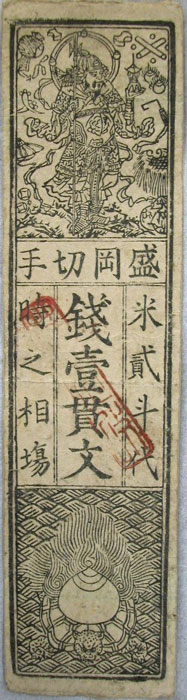 盛岡切手
米貳斗代
錢壹貫文
時之相塲